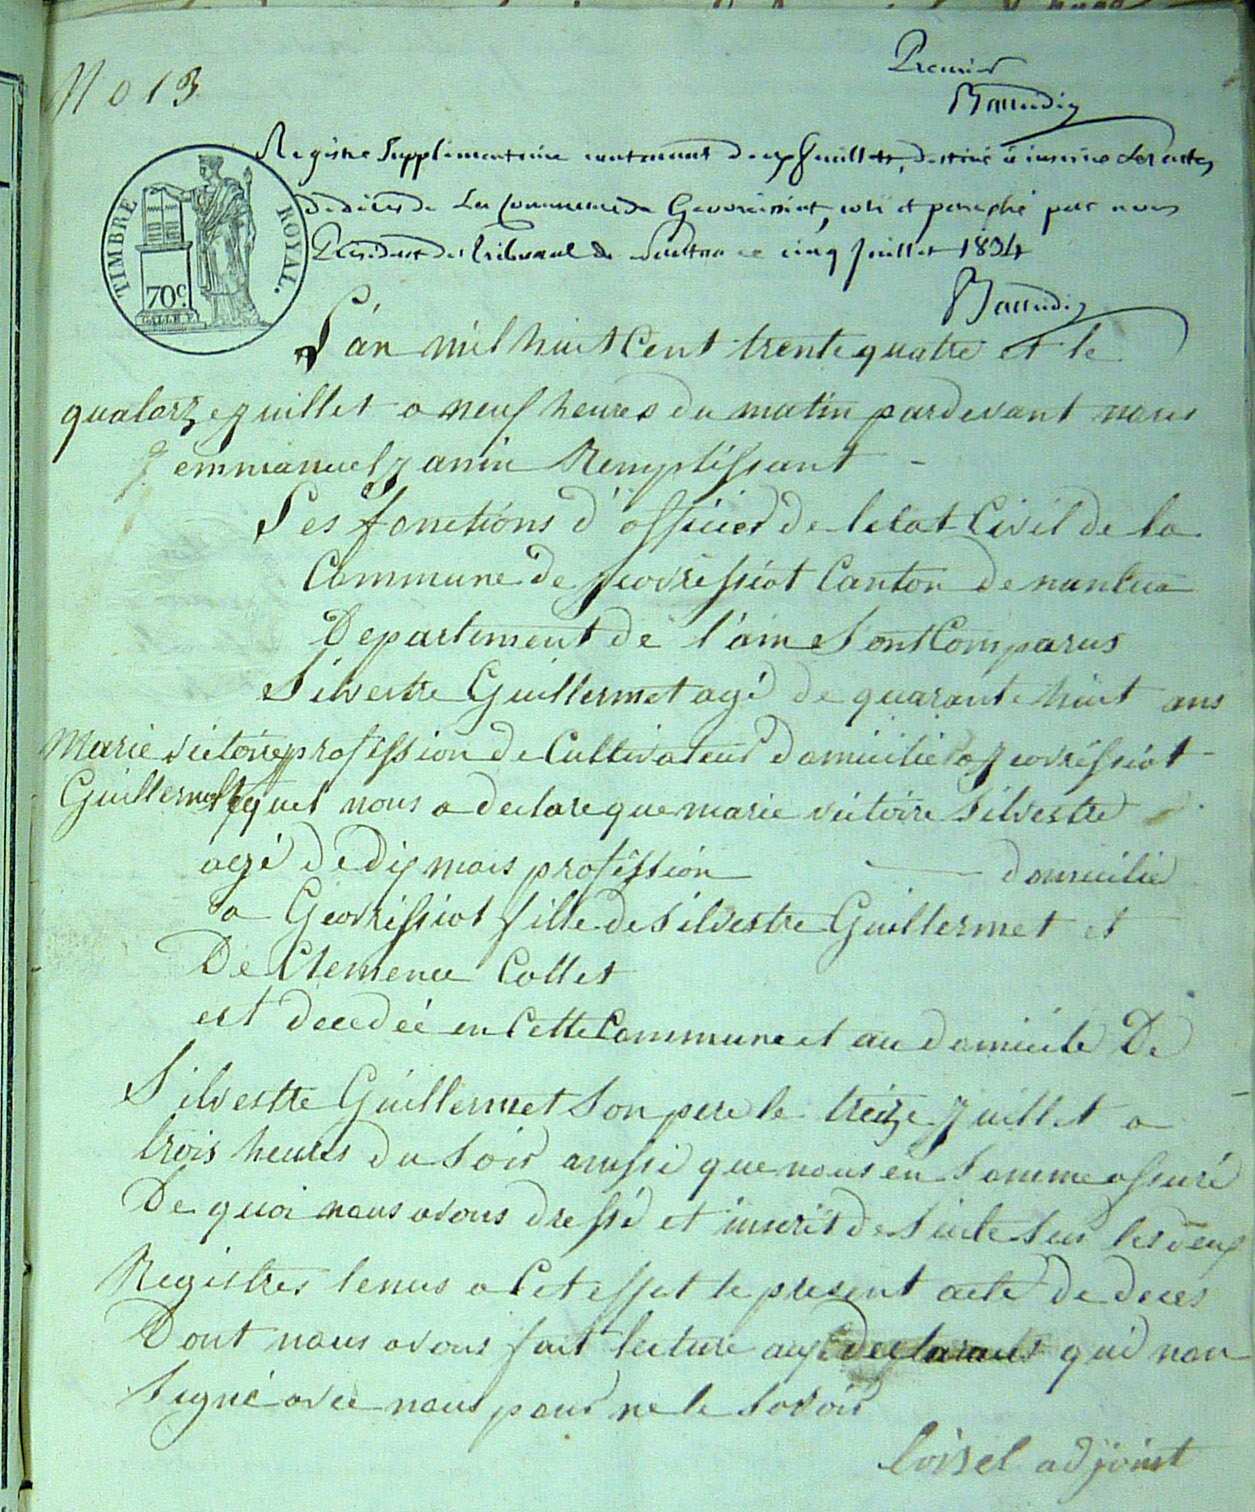 No 13
Premier
Baudin
Registre Supplémentaire contenant deux feuillets, destiné à inscrire les actes
de décès de la Commune de Geovreissiat, coté et paraphé par nous
Président du tribunal de Nantua ce cinq Juillet 1834
TIMBRE ROYAL.
70c.
L'án mil huit Cent trente quatre et le
quatorze juillet a neuf heures du matin pardevant nous
emmanuel janin Remplissant
Les fonctions d'officier de letat Civil de la
Commune de jeovressiat Canton de nantua
Departement de l'ain Sont Comparus
Silvestre Guillermet agé de quarante huit ans
Marie victoire
Guillermet
profession de Cultivateur domicilié a jeovressiat
lequel nous a declare que marie victoire Silvestre
agé de dix mois profession domicilié
a Geovrissiat fille de Silvestre Guillermet et
De Clemence Collet
est decedeé en Cette Commune et au domicile De
Silvestre Guillermet Son pere le treize Juillet a
trois heures du Soir ainsi que nous en Somme assuré
De quoi nous avons dressé et inscrit de Suite Sur les deux
Registres tenus a Cet effet le present acte de deces
Dont nous avons fait lecture aux declarants qui non
Signé avec nous pour ne le Savoir
loisel adjoint